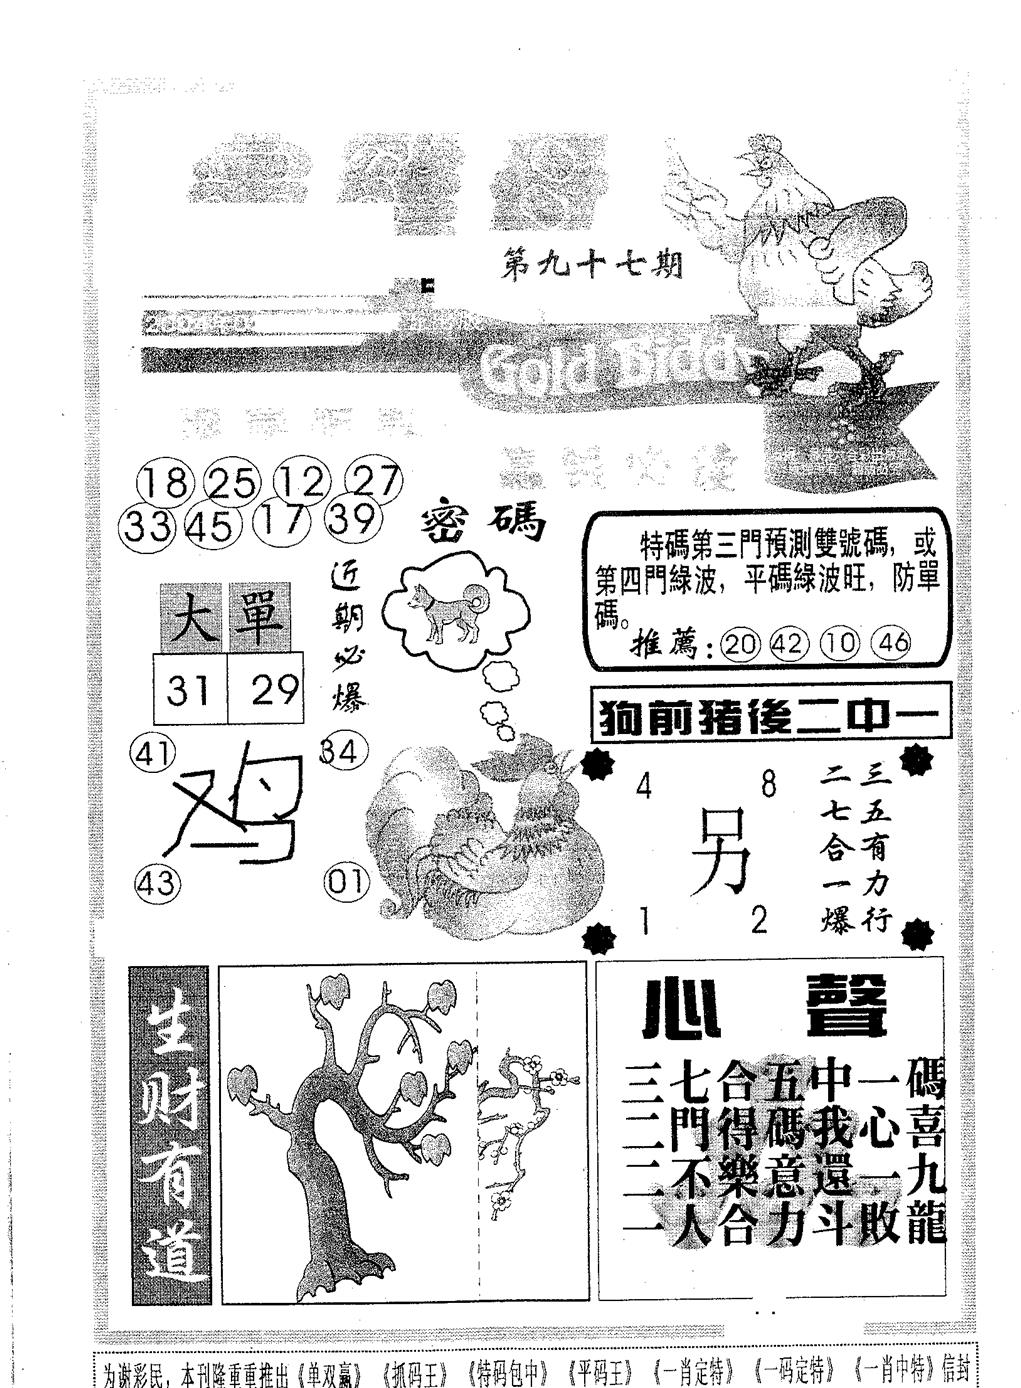 第九十七期
Gold Biddy
18 25 12 27
33 45 17 39
密碼
近期必爆
大單
31 29
41 34
鸡
43 01
特碼第三門預測雙號碼，或
第四門綠波，平碼綠波旺，防單
碼。
推薦：20 42 10 46
狗前猪後二中一
4 8
另
1 2
三五有力行
二七合一爆
生财有道
心聲
三七合五中一碼
二門得碼我心喜
二不樂意還一九
一人合力斗敗龍
为谢彩民，本刊隆重重推出《单双赢》《抓码王》《特码包中》《平码王》《一肖定特》《一码定特》《一肖中特》信封